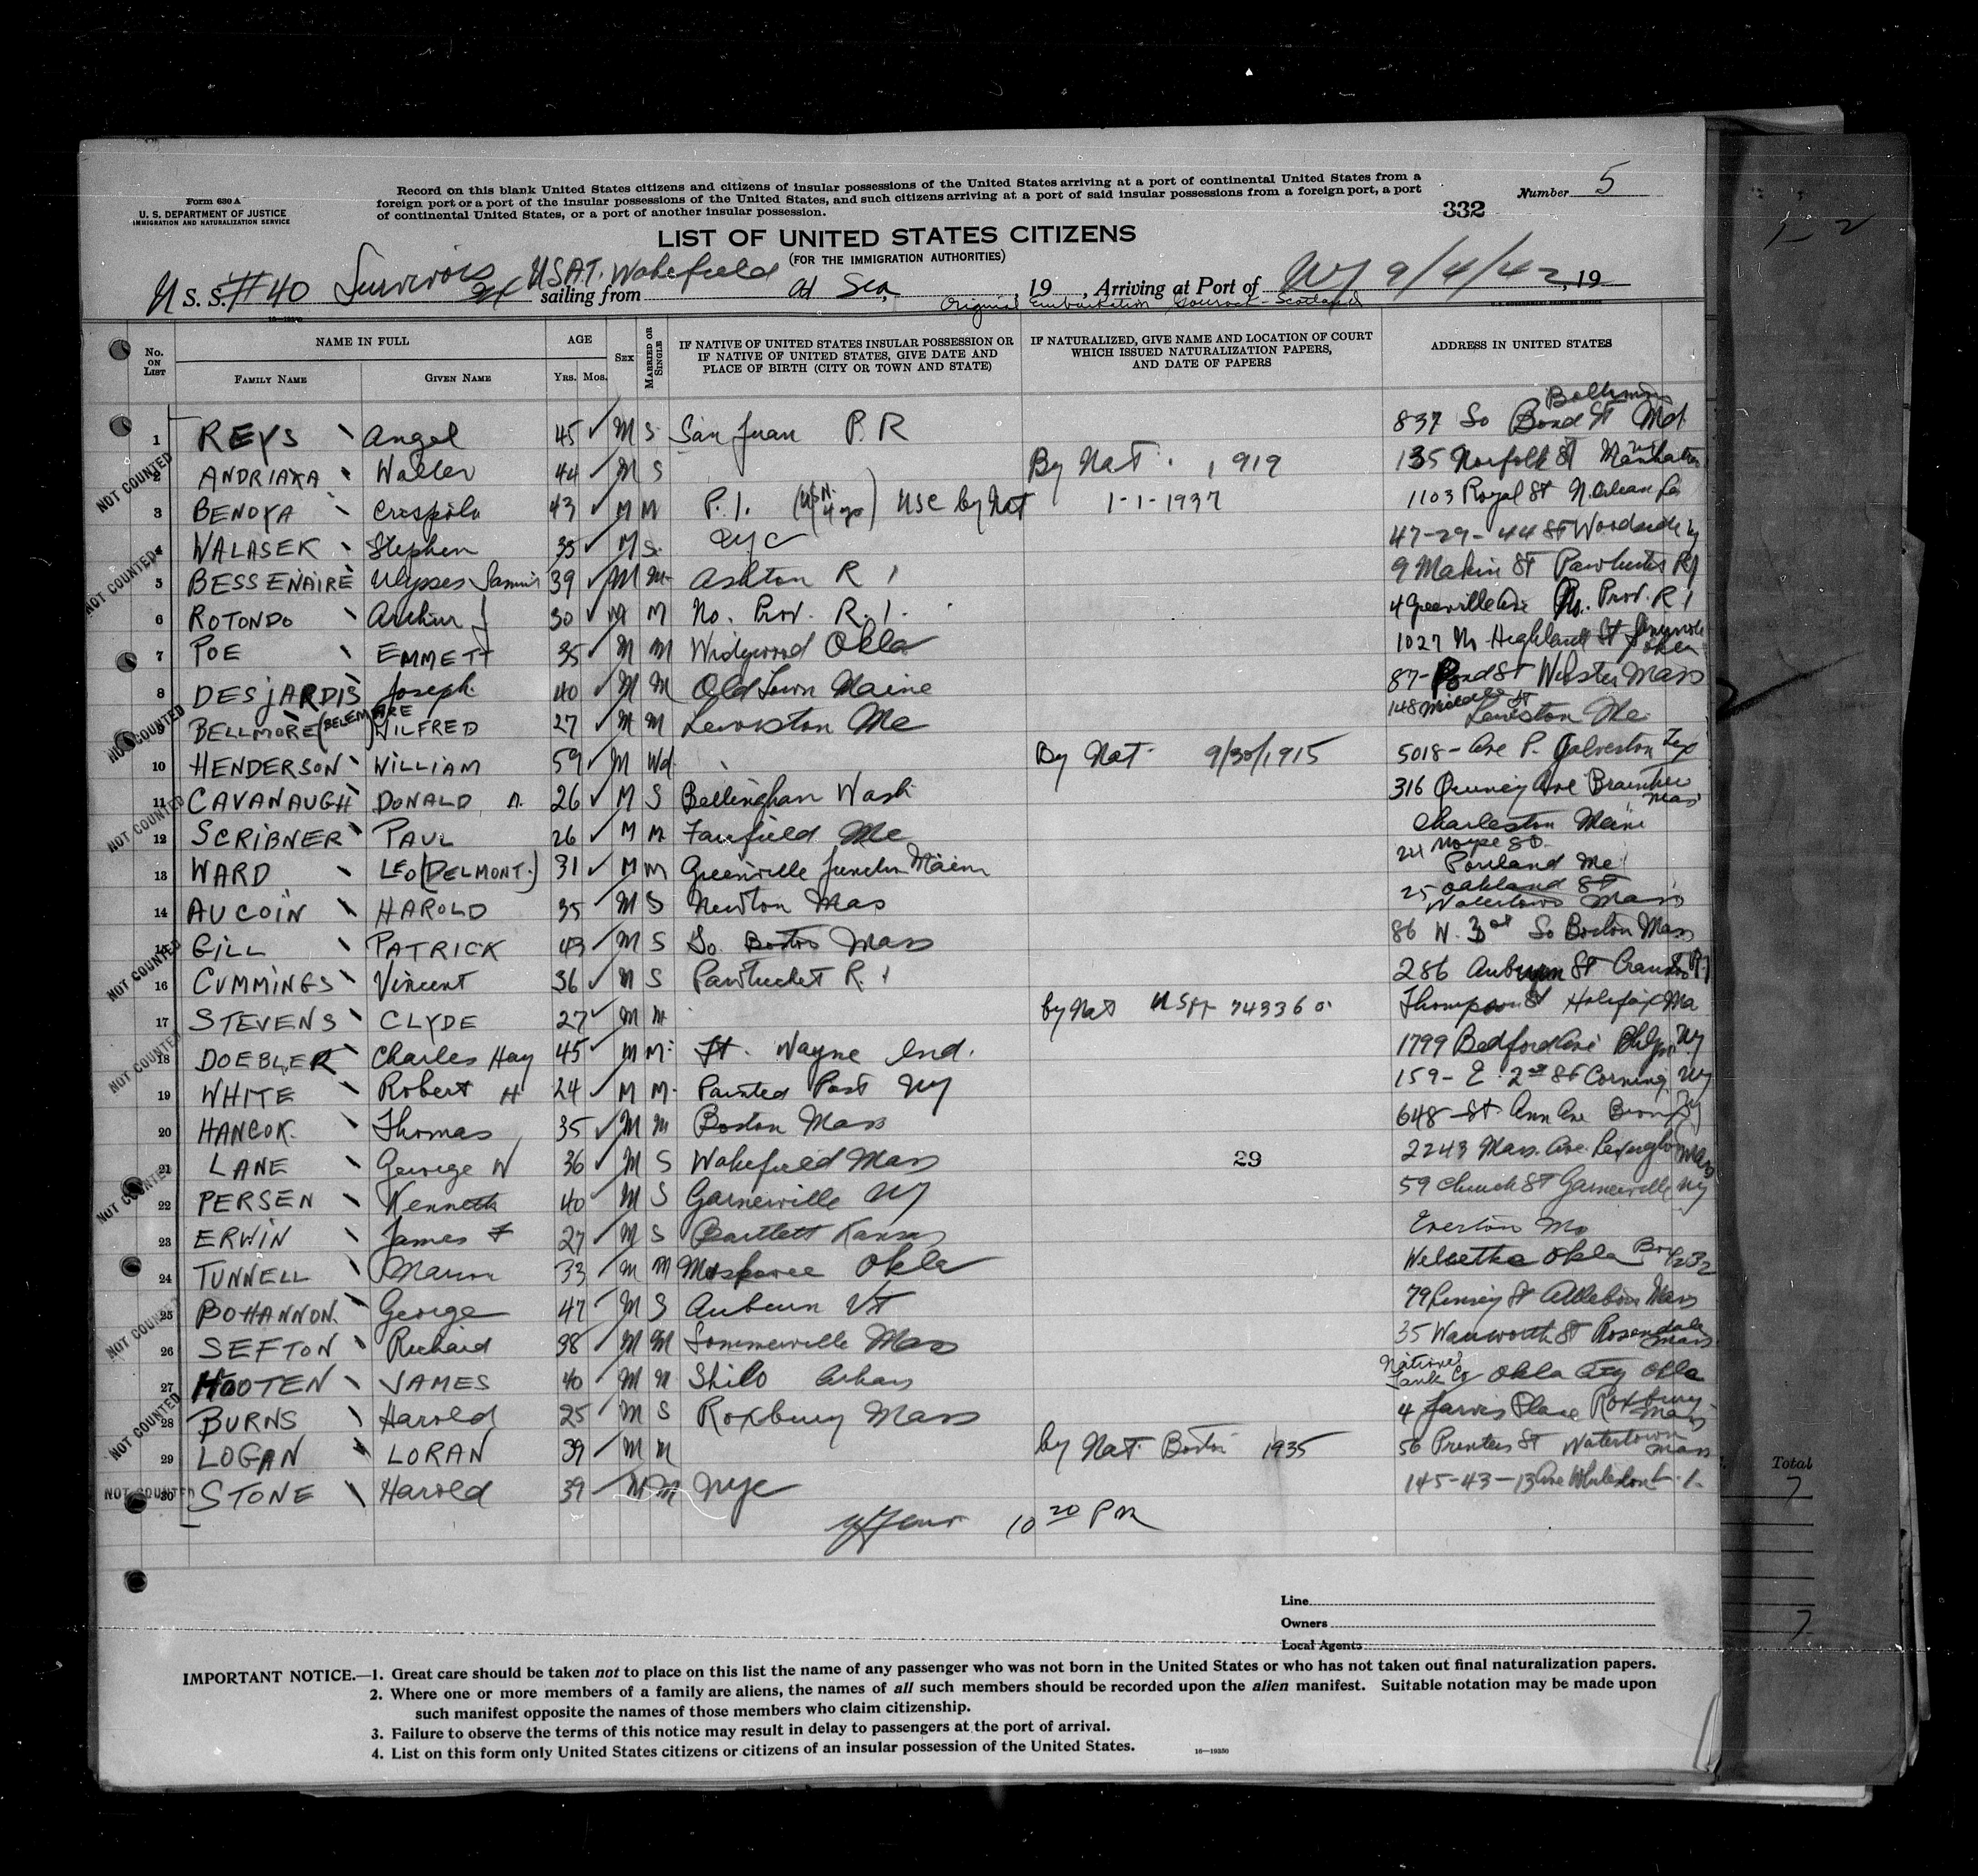 Form 630 A
U. S. DEPARTMENT OF JUSTICE
IMMIGRATION AND NATURALIZATION SERVICE
Record on this blank United States citizens and citizens of insular possessions of the United States arriving at a port of continental United States from a
foreign port or a port of the insular possessions of the United States, and such citizens arriving at a port of said insular possessions from a foreign port, a port
of continental United States, or a port of another insular possession.
Number 5
332
LIST OF UNITED STATES CITIZENS
(FOR THE IMMIGRATION AUTHORITIES)
S. S. #40 Survivors USAT. Wakefield sailing from At Sea, 19 , Arriving at Port of NY 9/4/42, 19
Original Embarkation Gourock - Scotland
No. ON LIST
NAME IN FULL
FAMILY NAME
GIVEN NAME
AGE
YRS.
MOS.
SEX
MARRIED OR SINGLE
IF NATIVE OF UNITED STATES INSULAR POSSESSION OR IF NATIVE OF UNITED STATES, GIVE DATE AND PLACE OF BIRTH (CITY OR TOWN AND STATE)
IF NATURALIZED, GIVE NAME AND LOCATION OF COURT WHICH ISSUED NATURALIZATION PAPERS, AND DATE OF PAPERS
ADDRESS IN UNITED STATES
1 REYS Angel 45 M S San Juan P. R 837 So Bond St Md
2 ANDRIAXA Walter 44 M S By Nat. 1919 135 Norfolk St Manhattan
3 BENOYA 43 M M P. I. (USN. 4 yo) USC by Nat 1-1-1937 1103 Royal St N. Orlean La
4 WALASEK Stephen 35 M S. NYC 47-29-44 St Woodside NY
5 BESSENAIRE Ulysses 39 M M Ashton R I 9 Makin St RI
6 ROTONDO Arthur J 30 M M No. Prov. R. I. 4 Greenville Ave No. Prov. R I
7 POE EMMETT 35 M M Okla 1027 No Highland St
8 DESJARDIS Joseph 40 M M Old Town Maine 87- Pond St Webster Mass
9 BELLMORE (BELEMARE) WILFRED 27 M M Lewiston Me 148 Middle St Lewiston Me
10 HENDERSON WILLIAM 59 M Wd. By Nat. 9/30/1915 5018- Ave P. Galveston Tex
11 CAVANAUGH DONALD 26 M S Bellingham Wash 316 Quincy Ave Braintree Mas
12 SCRIBNER PAUL 26 M M Fairfield Me Charleston Maine
13 WARD LEO (DELMONT.) 31 M M Greenville Junction Maine 24 St. Portland Me
14 AUCOIN HAROLD 35 M S Newton Mas 25 Oakland St Watertown Mass
15 GILL PATRICK 43 M S So. Boston Mass 86 W. 3rd So Boston Mass
16 CUMMINGS Vincent 36 M S Pawtucket R. I 286 Auburn St Cranston R.I
17 STEVENS CLYDE 27 M M by Nat 743360 Thompson St Halifax Ma
18 DOEBLER Charles Hay 45 M M Ft. Wayne Ind. 1799 Bedford Ave Bklyn NY
19 WHITE Robert H 24 M M Painted Post NY 159- E. 2nd St Corning NY
20 HANCOK. Thomas 35 M M Boston Mass 648 - St Ann Ave Bronx NY
21 LANE George W 36 M S Wakefield Mass 29 2243 Mass. Ave Lexington Mass
22 PERSEN Kenneth 40 M S Garnerville NY 59 Church St Garnerville NY
23 ERWIN James F 27 M S Bartlett Kansas Everton Mo
24 TUNNELL Marion 33 M M Okla Weleetka Okla Box
25 BOHANNON. George 47 M S Auburn VT 79 St Mass
26 SEFTON Richard 38 M M Sommerville Mass 35 St Rosendale Mass
27 HOOTEN JAMES 40 M M Shilo Arkans National Tank Co Okla City Okla
28 BURNS Harold 25 M S Roxbury Mass 4 Jarvis Place Roxbury Mass
29 LOGAN LORAN 39 M M by Nat. Boston 1935 56 Prentiss St Watertown Mass
30 STONE Harold 39 M M NYC 145-43-13 Ave Whitestone L. I.
10 20 PM
NOT COUNTED
NOT COUNTED
NOT COUNTED
NOT COUNTED
NOT COUNTED
NOT COUNTED
NOT COUNTED
NOT COUNTED
NOT COUNTED
NOT COUNTED
Total
7
7
Line
Owners
Local Agents
IMPORTANT NOTICE.—1. Great care should be taken not to place on this list the name of any passenger who was not born in the United States or who has not taken out final naturalization papers.
2. Where one or more members of a family are aliens, the names of all such members should be recorded upon the alien manifest. Suitable notation may be made upon
such manifest opposite the names of those members who claim citizenship.
3. Failure to observe the terms of this notice may result in delay to passengers at the port of arrival.
4. List on this form only United States citizens or citizens of an insular possession of the United States.
16—19350